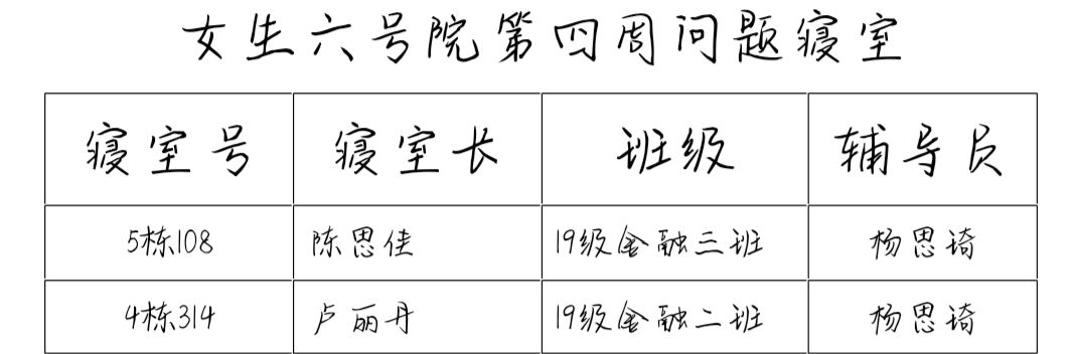 女生六号院第四周问题寝室
寝室号 寝室长 班级 辅导员
5栋108 陈思佳 19级金融三班 杨思琦
4栋314 卢丽丹 19级金融二班 杨思琦